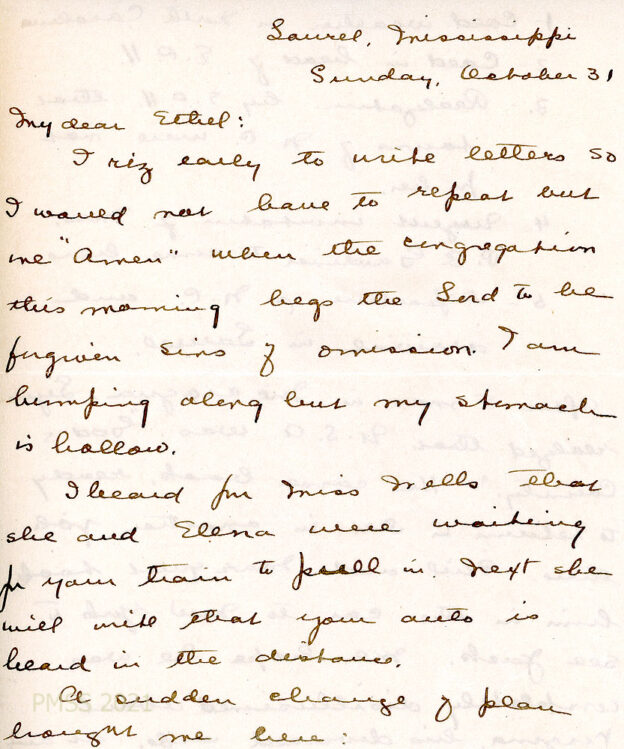 Laurel, Mississippi
Sunday, October 31
My dear Ethel:
I riz early to write letters so
I would not have to repeat but
one "Amen" when the congregation
this morning begs the Lord to be
forgiven sins of omission. I am
bumping along but my stomach
is hollow.
I heard fr Miss Wells that
she and Elena were waiting
fr your train to pull in. Next she
will write that your auto is
heard in the distance.
A sudden change of plan
brought me here:
PMSS 2021